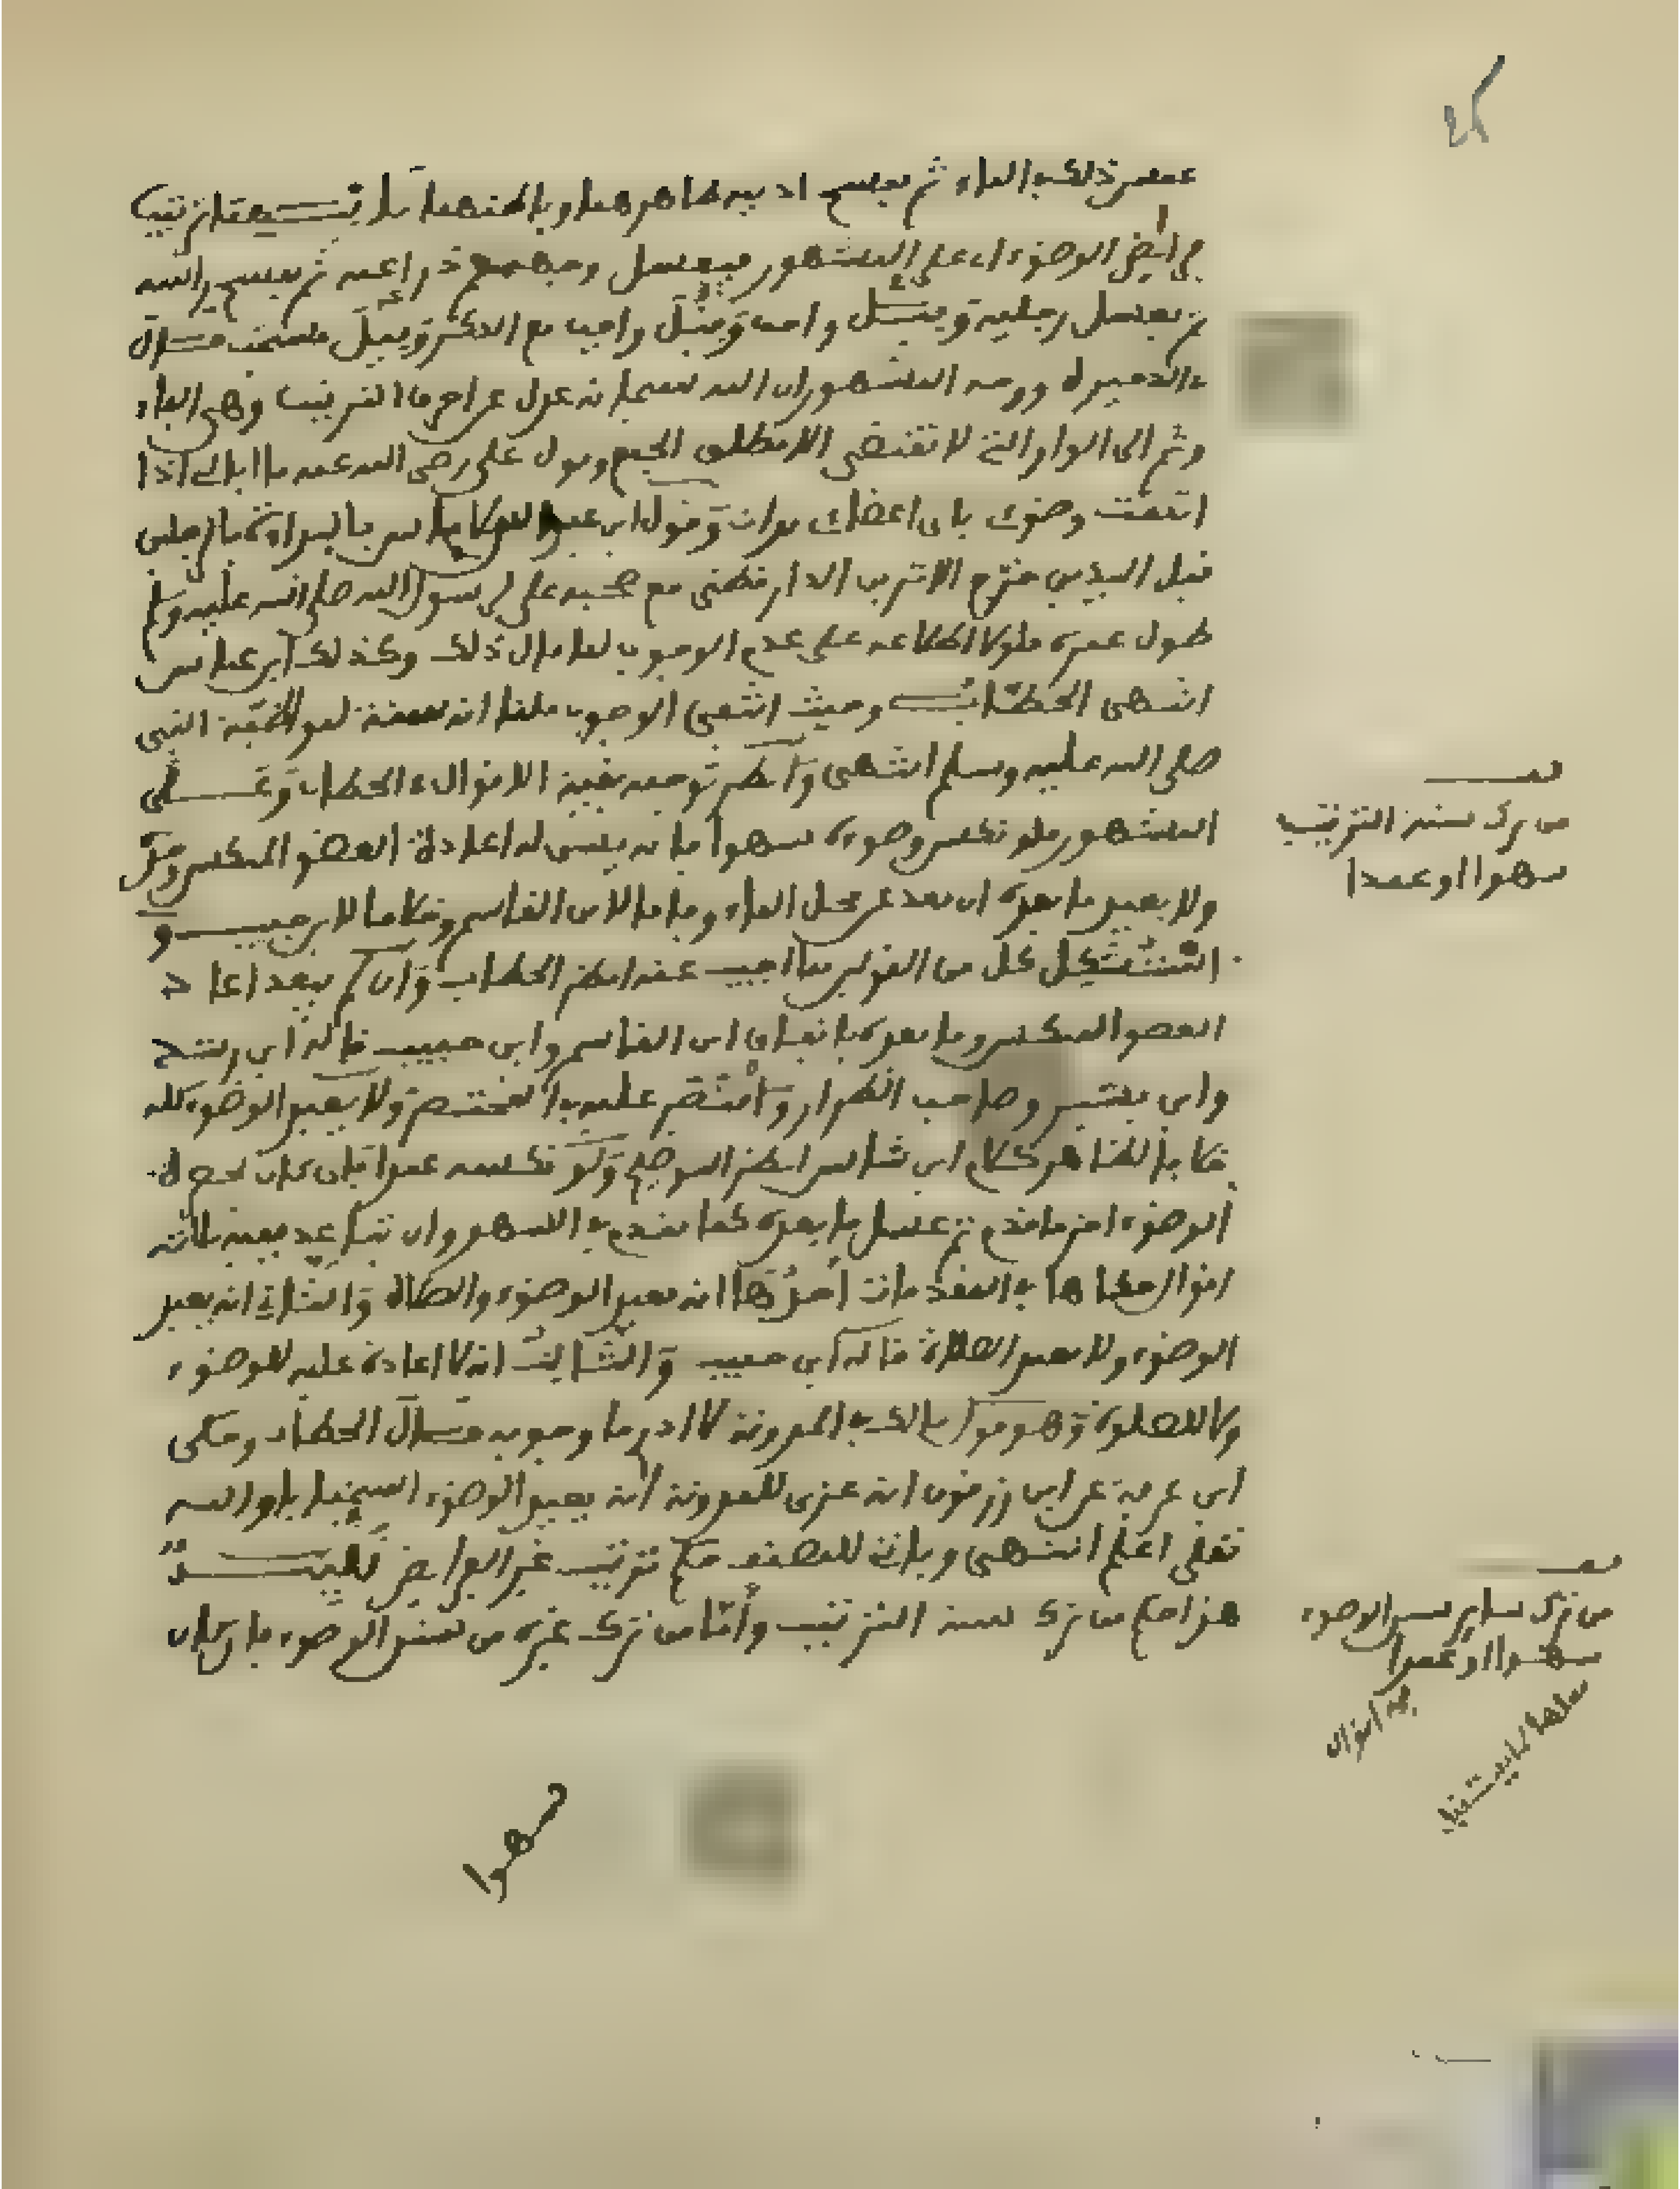 ذلك الماء ثم يمسح اذنيه ظاهرهما وباطنهما
الوضوء على المشهور فيغسل وجهه ثم ذراعيه ثم يمسح راسه
ثم يغسل رجليه وقيل واجب وقيل واجب مع الذكر وقيل مستحب قال
ووجه المشهور ان الله سبحانه عدل عن الترتيب وهي الفاء
وثم الى الواو التي لا تقتضي الا مطلق الجمع وقول علي رضي الله عنه ما ابالي اذا
اتممت وضوئي باي اعضائي بدات وقول ابن عباس لا باس بالبداءة بالرجلين
قبل اليدين خرج الاثرين الدارقطني مع صحبة علي لرسول الله صلى الله عليه وسلم
طول عمره فلولا اطلاعه على عدم الوجوب لما قال ذلك وكذلك ابن عباس
انتهى الحطاب وحيث انتفى الوجوب قلنا انه سنة لمواظبة النبي
صلى الله عليه وسلم انتهى وانظر توجيه بقية الاقوال الحطاب وعلى
المشهور فلو نكس وضوءه سهوا فانه اعادة العضو المنكس
ولا يعيد ما بعده ان بعد عن محل الماء وفاقا لابن القاسم وخلافا لابن حبيب و
استشكل كل من القولين بما اجيب عنه انظر الحطاب وان لم يبعد اعاد
العضو المنكس وما بعده باتفاق ابن القاسم وابن حبيب قاله ابن رشد
وابن بشير وصاحب الطراز واقتصر عليه المختصر ولا يعيد الوضوء كله
خلافا لظاهر كلام ابن شاس انظر التوضيح ولو نكسه عمدا فان كان
الوضوء اخر ما قدم ثم غسل ما بعده كما تقدم السهو وان تباعد ففيه ثلاثة
اقوال حكاها المقدمات احدها انه يعيد الوضوء والصلاة والثاني انه يعيد
الوضوء ولا يعيد الصلاة قاله ابن حبيب والثالث انه لا اعادة عليه للوضوء
ولا للصلوة وهو قول مالك المدونة لا ادري ما وجوبه قال الحطاب وحكى
ابن عرفة عن ابن زرقون انه عزى للمدونة انه يعيد الوضوء استحبابا والله
تعلى اعلم انتهى وياتي للمصنف حكم ترتيب غير الفرايض
هذا حكم من ترك سنة الترتيب واما من ترك غيره من سنن الوضوء فان كان
سهوا
من ترك سنة الترتيب
سهوا او عمدا
من ترك ساير سنن الوضوء
سهوا او عمدا
اقوال